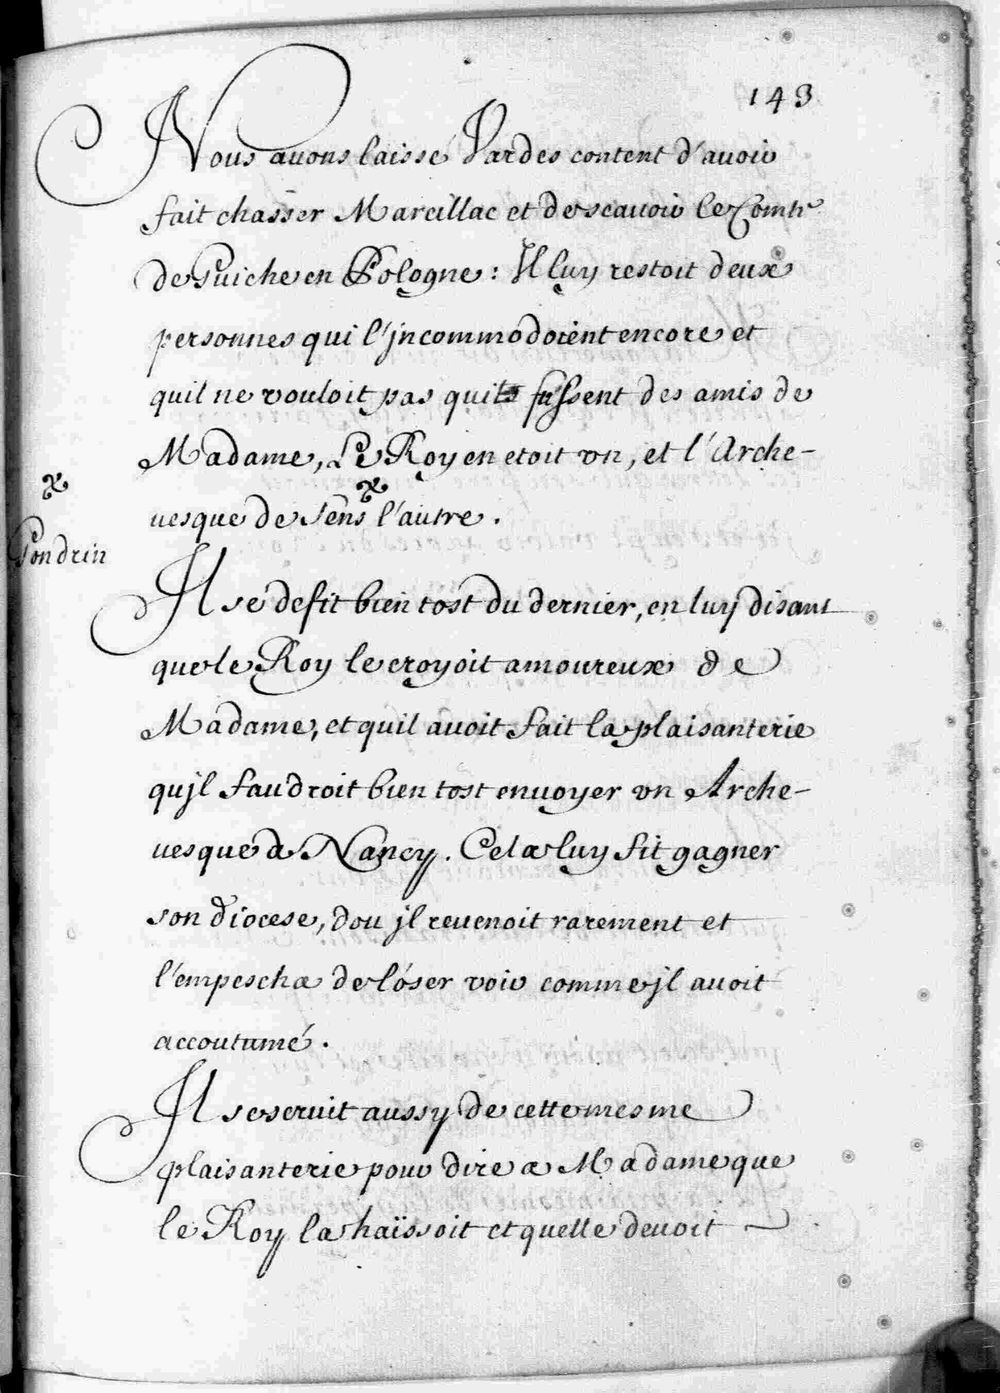 143
Nous avons laissé Vardes content d'avoir
fait chasser Marcillac et de scavoir le Comte
de Guiche en Pologne : Il luy restoit deux
personnes qui l'jncommodoient encore et
quil ne vouloit pas quils fussent des amis de
Madame, Le Roy en etoit vn, et l'Arche-
uesque de Sens l'autre.
Gondrin
Il se defit bien tost du dernier, en luy disant
que le Roy le croyoit amoureux de
Madame, et quil avoit fait la plaisanterie
qujl faudroit bien tost envoyer vn Arche-
uesque a Nancy. Cela luy fit gagner
son diocese, dou jl reuenoit rarement et
l'empescha de l'oser voir comme jl avoit
accoutumé.
Il se seruit aussy de cette mesme
plaisanterie pour dire a Madame que
le Roy la haïssoit et quelle deuoit